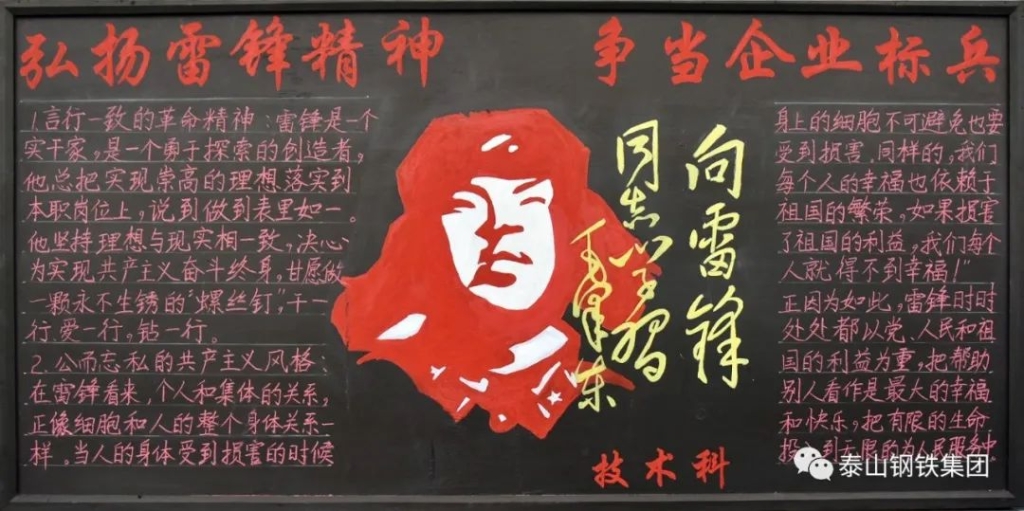 弘扬雷锋精神 争当企业标兵
1.言行一致的革命精神：雷锋是一个
实干家，是一个勇于探索的创造者，
他总把实现崇高的理想落实到
本职岗位上，说到做到表里如一。
他坚持理想与现实相一致，决心
为实现共产主义奋斗终身，甘愿做
一颗永不生锈的“螺丝钉”，干一
行爱一行，钻一行。
2、公而忘私的共产主义风格：
在雷锋看来，个人和集体的关系，
正像细胞和人的整个身体关系一
样。当人的身体受到损害的时候
向雷锋
同志学习
毛泽东
技术科
身上的细胞不可避免也要
受到损害。同样的，我们
每个人的幸福也依赖于
祖国的繁荣，如果损害
了祖国的利益，我们每个
人就得不到幸福！”
正因为如此，雷锋时时
处处都以党、人民和祖
国的利益为重，把帮助
别人看作是最大的幸福
和快乐，把有限的生命
投入到无限的为人民服务中
泰山钢铁集团